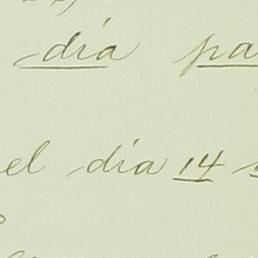 día pa
el día 14